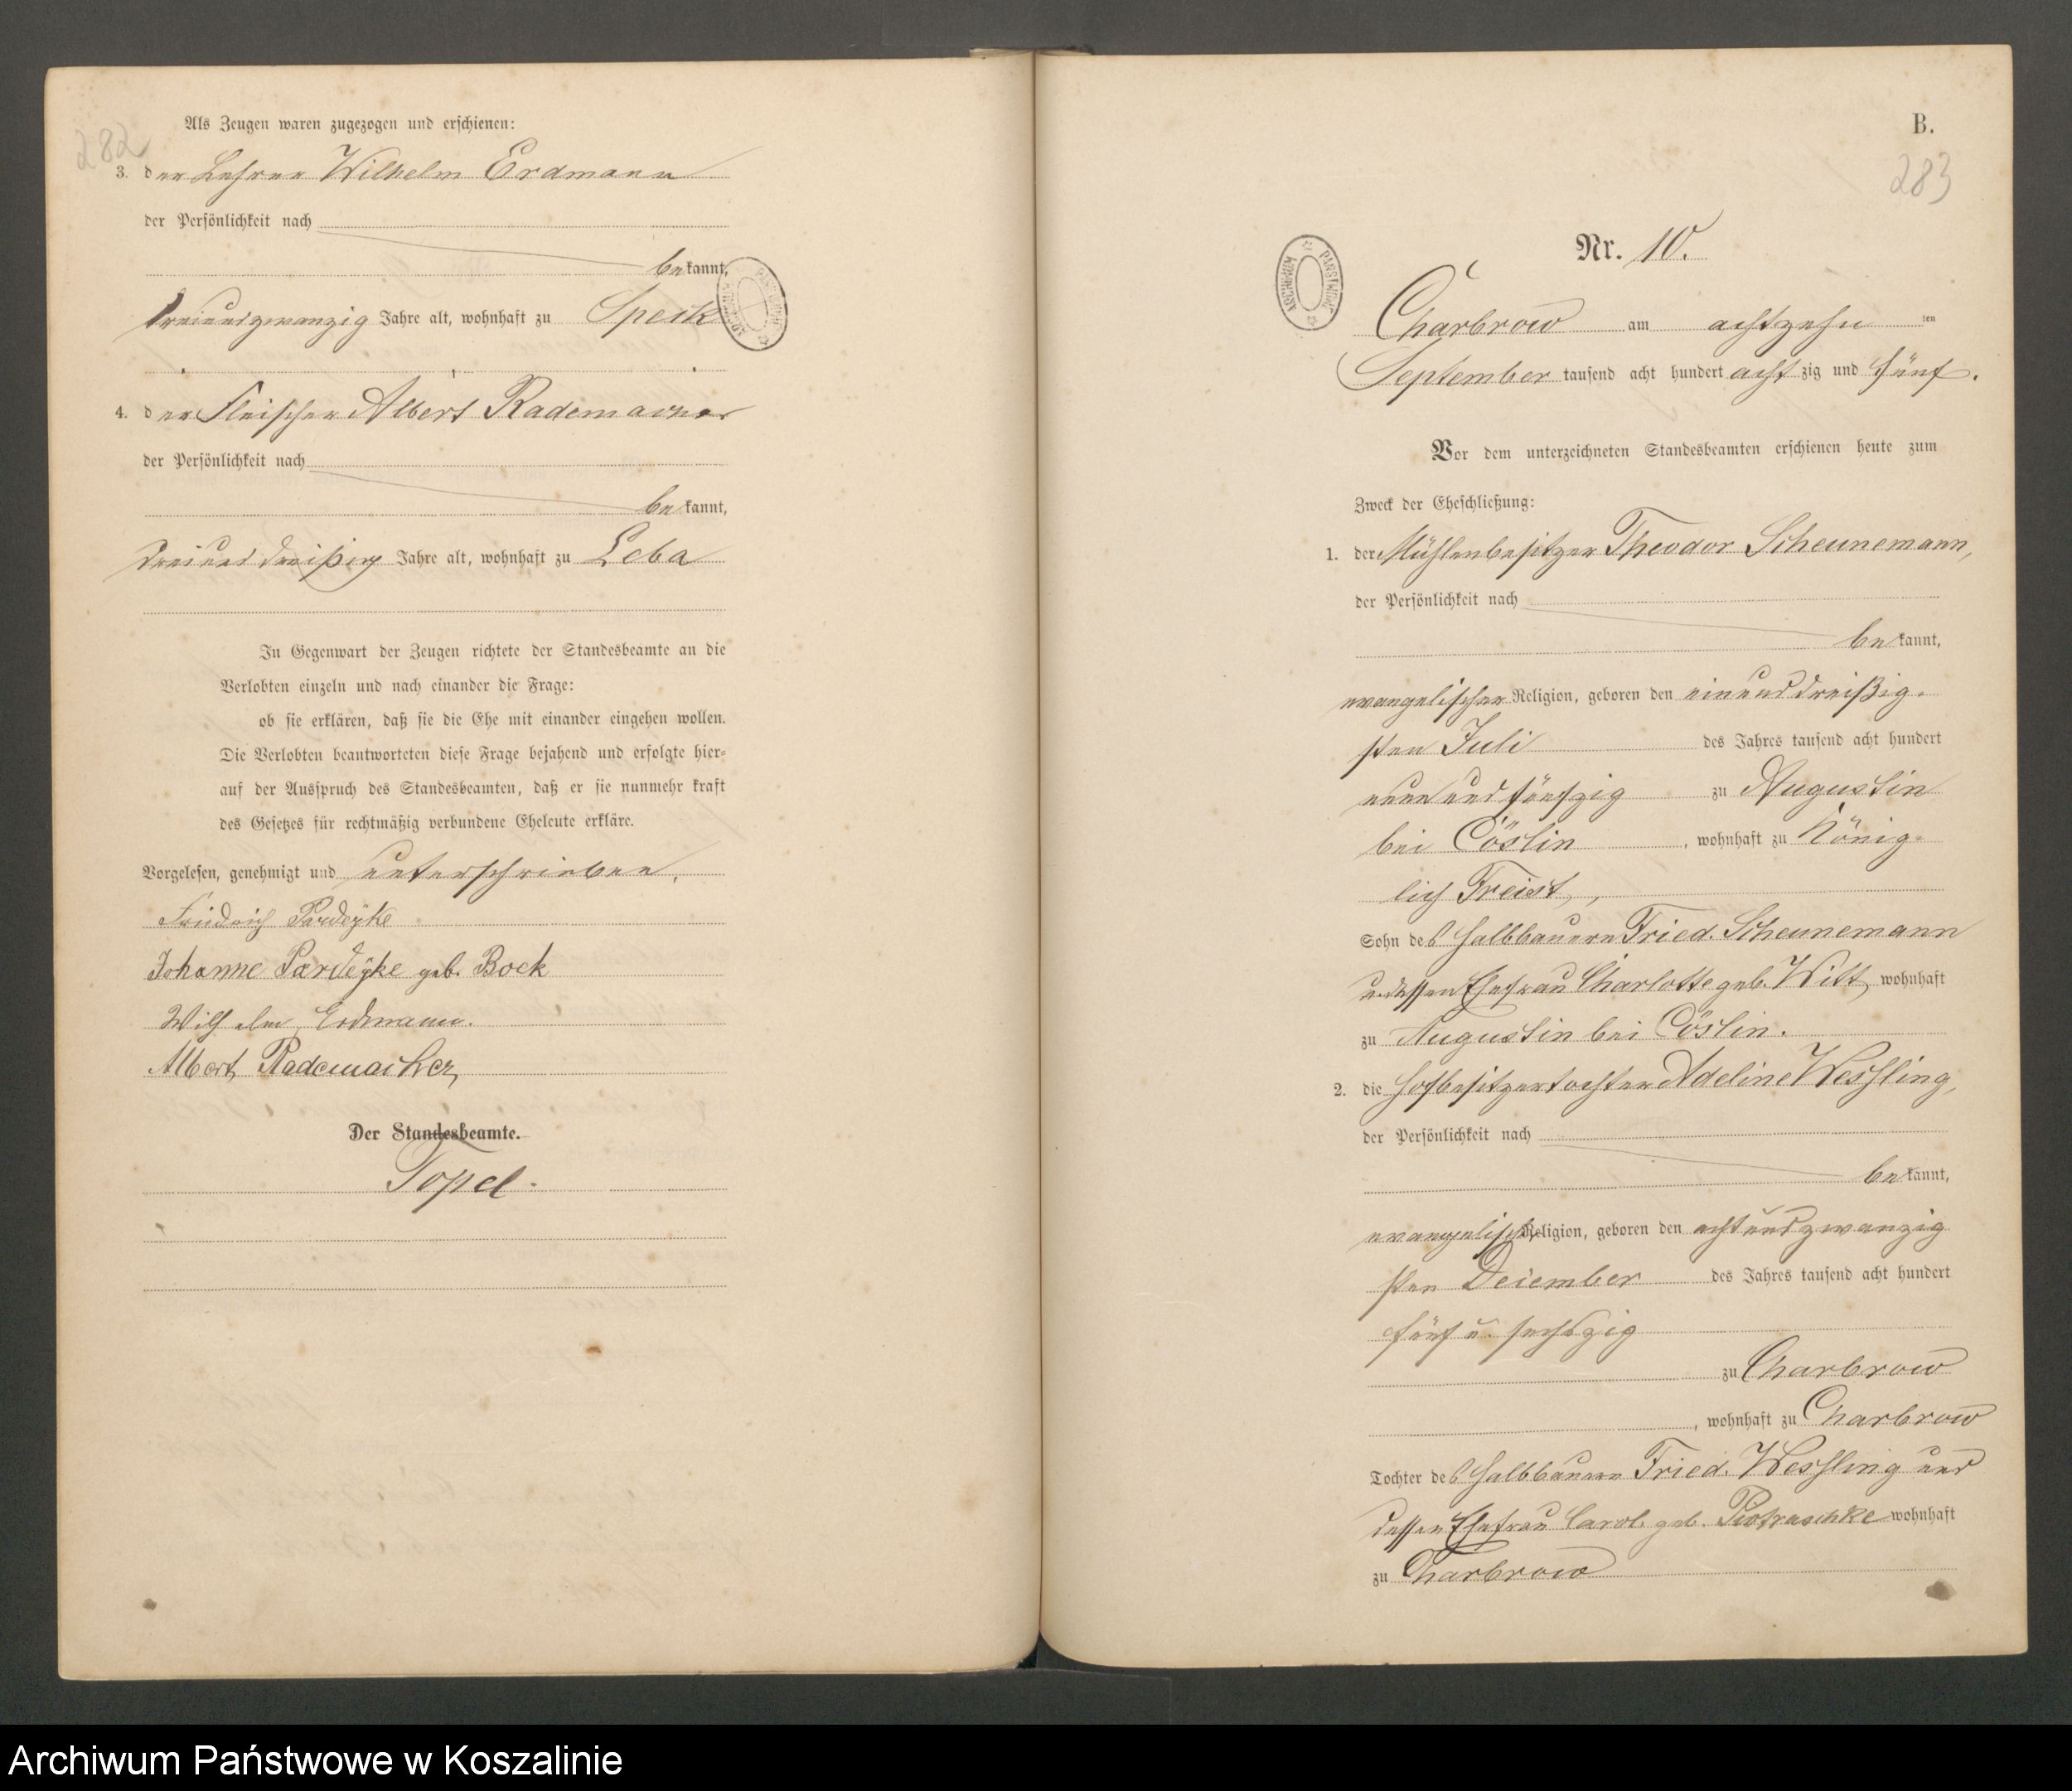 282
Als Zeugen waren zugezogen und erschienen:
3. der Lehrer Wilhelm Erdmann
der Persönlichkeit nach
bekannt,
dreiundzwanzig Jahre alt, wohnhaft zu Speck
4. der Fleischer Albert Rademacher
der Persönlichkeit nach
bekannt,
dreiunddreißig Jahre alt, wohnhaft zu Leba
In Gegenwart der Zeugen richtete der Standesbeamte an die
Verlobten einzeln und nach einander die Frage:
ob sie erklären, daß sie die Ehe mit einander eingehen wollen.
Die Verlobten beantworteten diese Frage bejahend und erfolgte hier-
auf der Ausspruch des Standesbeamten, daß er sie nunmehr kraft
des Gesetzes für rechtmäßig verbundene Eheleute erkläre.
Vorgelesen, genehmigt und unterschrieben.
Friedrich Pardeÿke
Johanne Pardeÿke geb. Bock
Wilhelm Erdmann.
Albert Rademacher,
Der Standesbeamte.
Topel.
B.
283
ARCHIWUM PAŃSTWOWE
Nr. 10.
Charbrow am achtzehn ten
September tausend acht hundert achtzig und fünf.
Vor dem unterzeichneten Standesbeamten erschienen heute zum
Zweck der Eheschließung:
1. der Mühlenbesitzer Theodor Scheunemann,
der Persönlichkeit nach
bekannt,
evangelischer Religion, geboren den einunddreißig-
sten Juli des Jahres tausend acht hundert
neunundfünfzig zu Augustin
bei Cöslin, wohnhaft zu König-
lich Freist,
Sohn des Halbbauern Fried. Scheunemann
u. dessen Ehefrau Charlotte geb. Witt, wohnhaft
zu Augustin bei Cöslin.
2. die Hofbesitzertochter Adeline Wessling,
der Persönlichkeit nach
bekannt,
evangelischer Religion, geboren den achtundzwanzig
sten Dezember des Jahres tausend acht hundert
fünf u. sechszig
zu Charbrow
, wohnhaft zu Charbrow
Tochter des Halbbauern Fried. Wessling und
dessen Ehefrau Carol. geb. Piotraschke wohnhaft
zu Charbrow
Archiwum Państwowe w Koszalinie